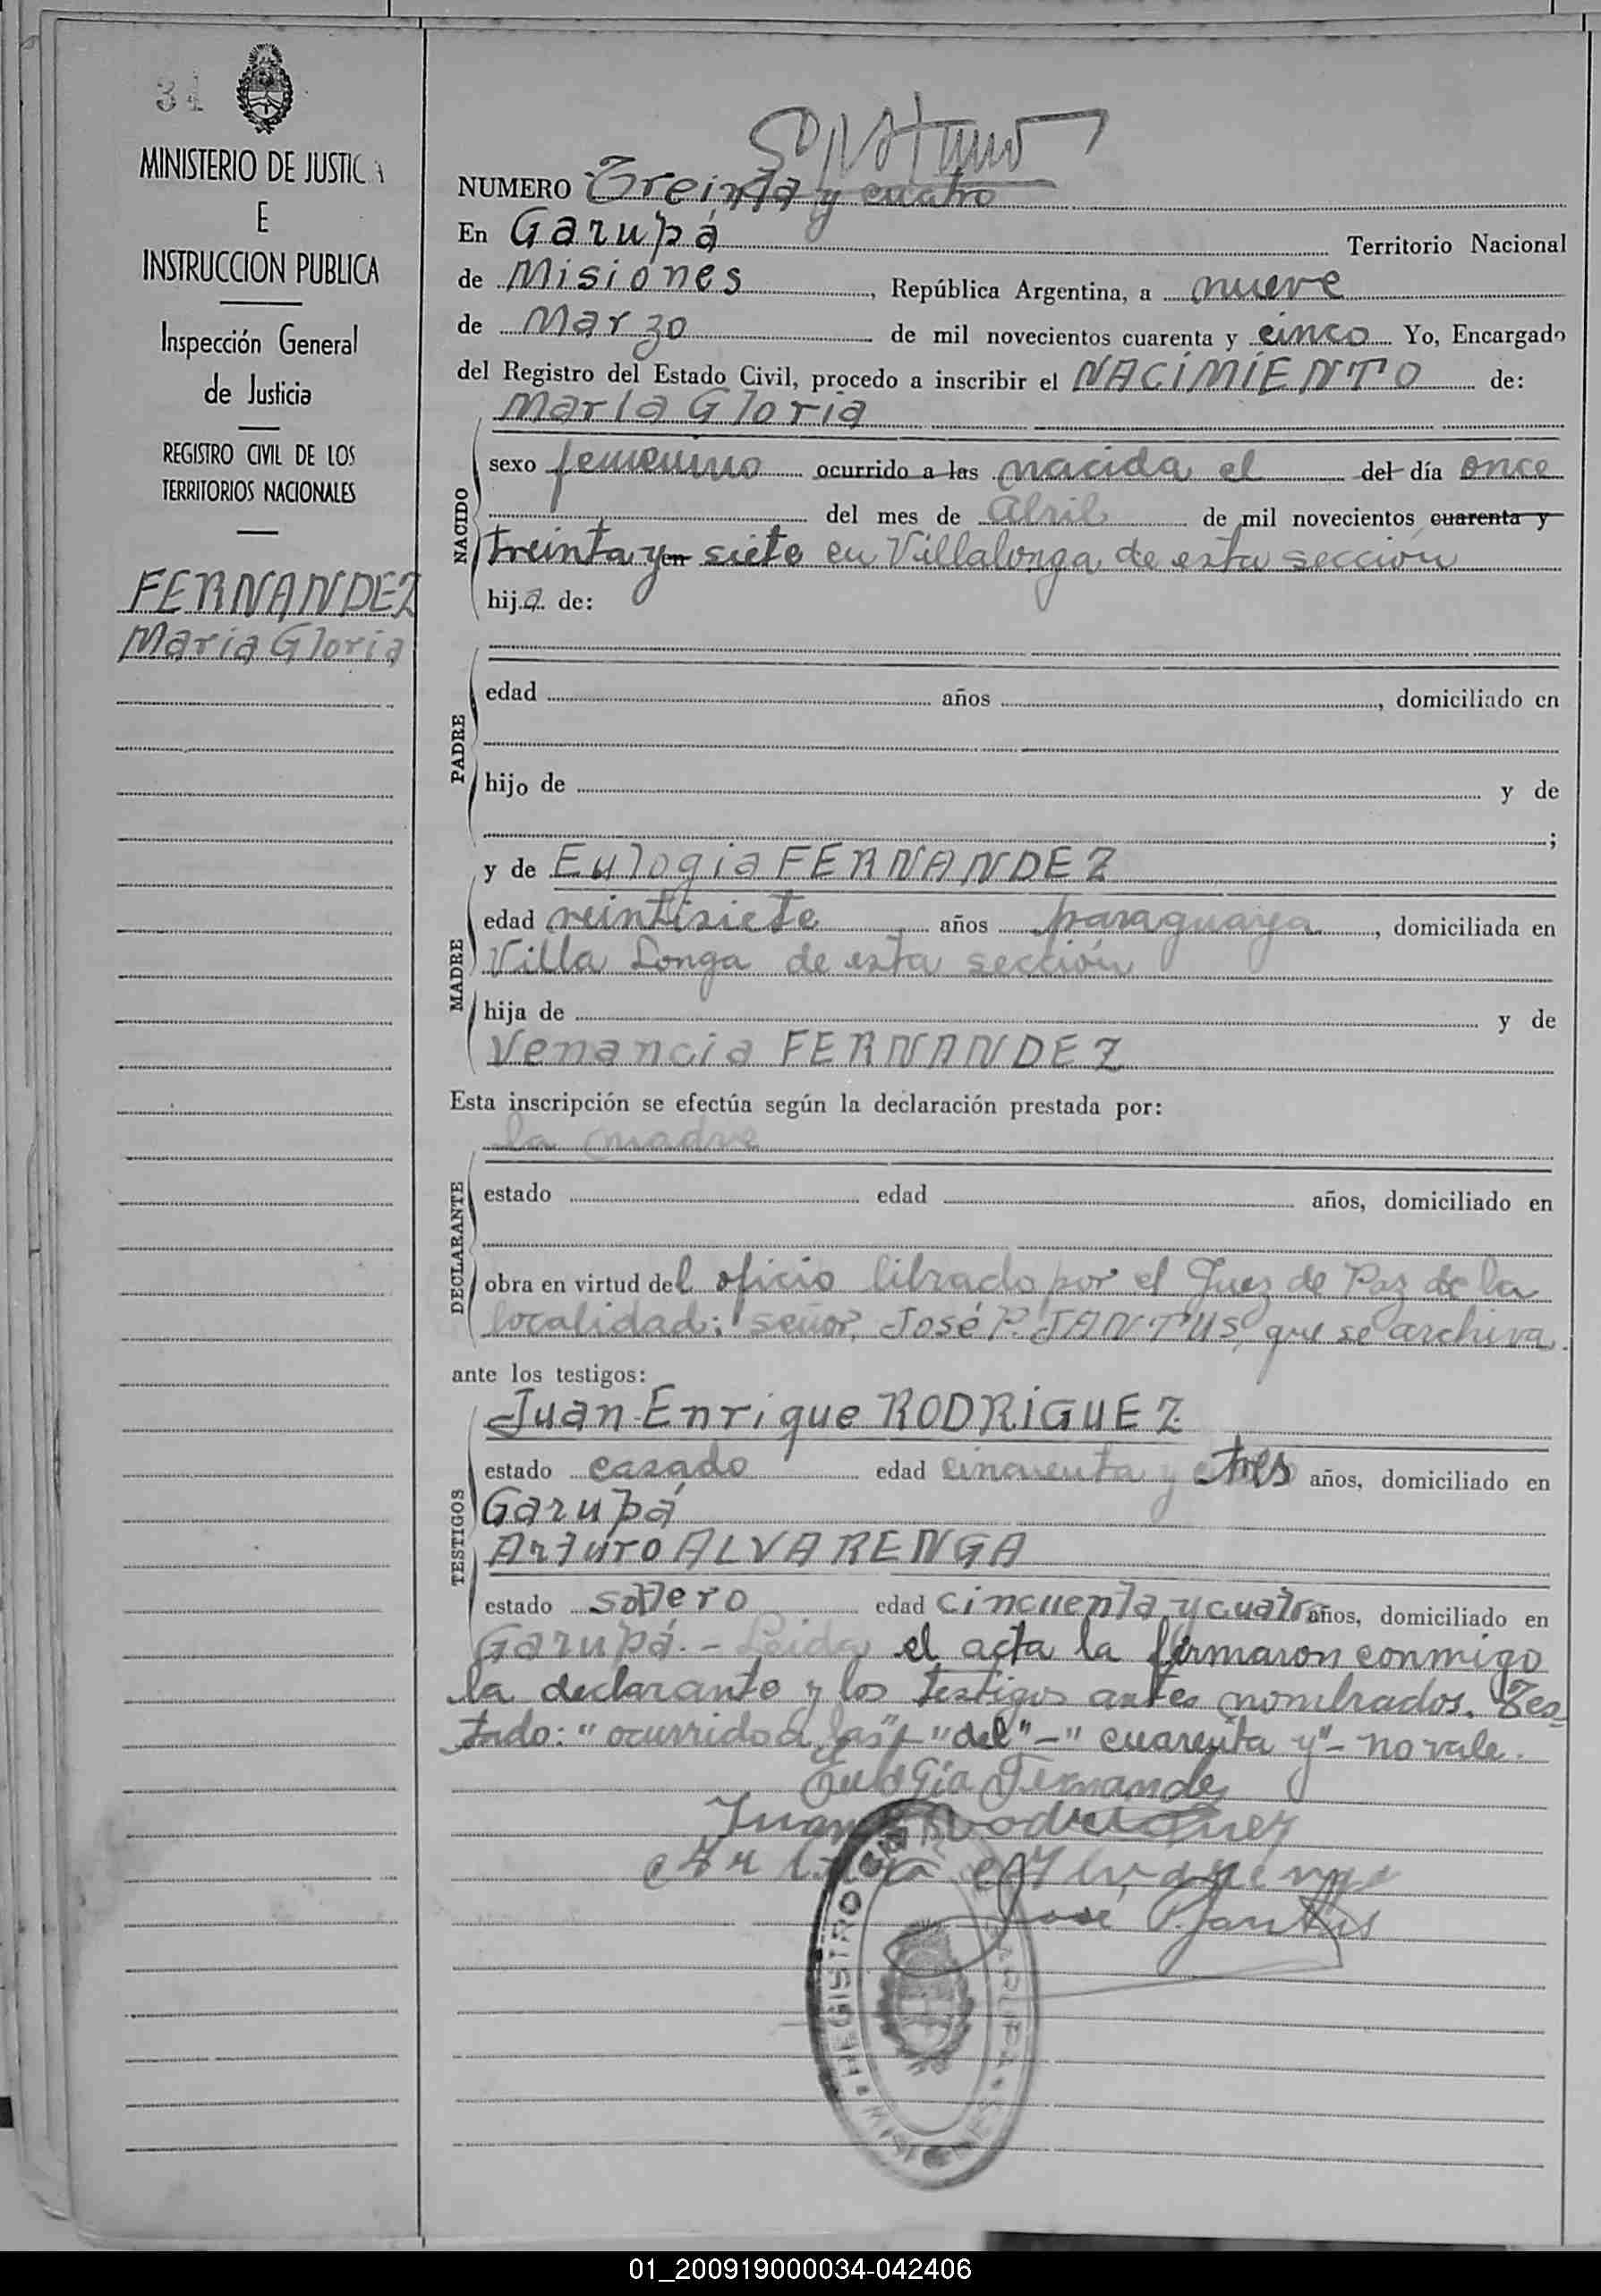 34
MINISTERIO DE JUSTICIA
E
INSTRUCCION PUBLICA
Inspección General
de Justicia
REGISTRO CIVIL DE LOS
TERRITORIOS NACIONALES
FERNANDEZ
Maria Gloria
NUMERO Treinta y cuatro
En Garupá Territorio Nacional
de Misiones, República Argentina, a nueve
de Marzo de mil novecientos cuarenta y cinco Yo, Encargado
del Registro del Estado Civil, procedo a inscribir el NACIMIENTO de:
NACIDO
Maria Gloria
sexo femenino ocurrido a las nacida el del día once
del mes de Abril de mil novecientos cuarenta y
treinta y en siete en Villalonga de esta sección
hija de:
PADRE
edad años , domiciliado en
hijo de y de
;
y de Eulogia FERNANDEZ
MADRE
edad veintisiete años paraguaya, domiciliada en
Villa Longa de esta sección
hija de y de
Venancia FERNANDEZ
Esta inscripción se efectúa según la declaración prestada por:
la madre
DECLARANTE
estado edad años, domiciliado en
obra en virtud del oficio librado por el Juez de Paz de la
localidad; señor, José P. JANTUS, que se archiva.
ante los testigos:
TESTIGOS
Juan Enrique RODRIGUEZ
estado casado edad cincuenta y tres años, domiciliado en
Garupá
Arturo ALVARENGA
estado soltero edad cincuenta y cuatro años, domiciliado en
Garupá.- Leida el acta la firmaron conmigo
la declarante y los testigos antes nombrados. Tes-
tado: "ocurrido a las"- "del"-" cuarenta y"- no vale.
Eulogia Fernande
Juan Rodriguez
José P. Jantus
REGISTRO CIVIL
GARUPA
MISIONES
01_200919000034-042406